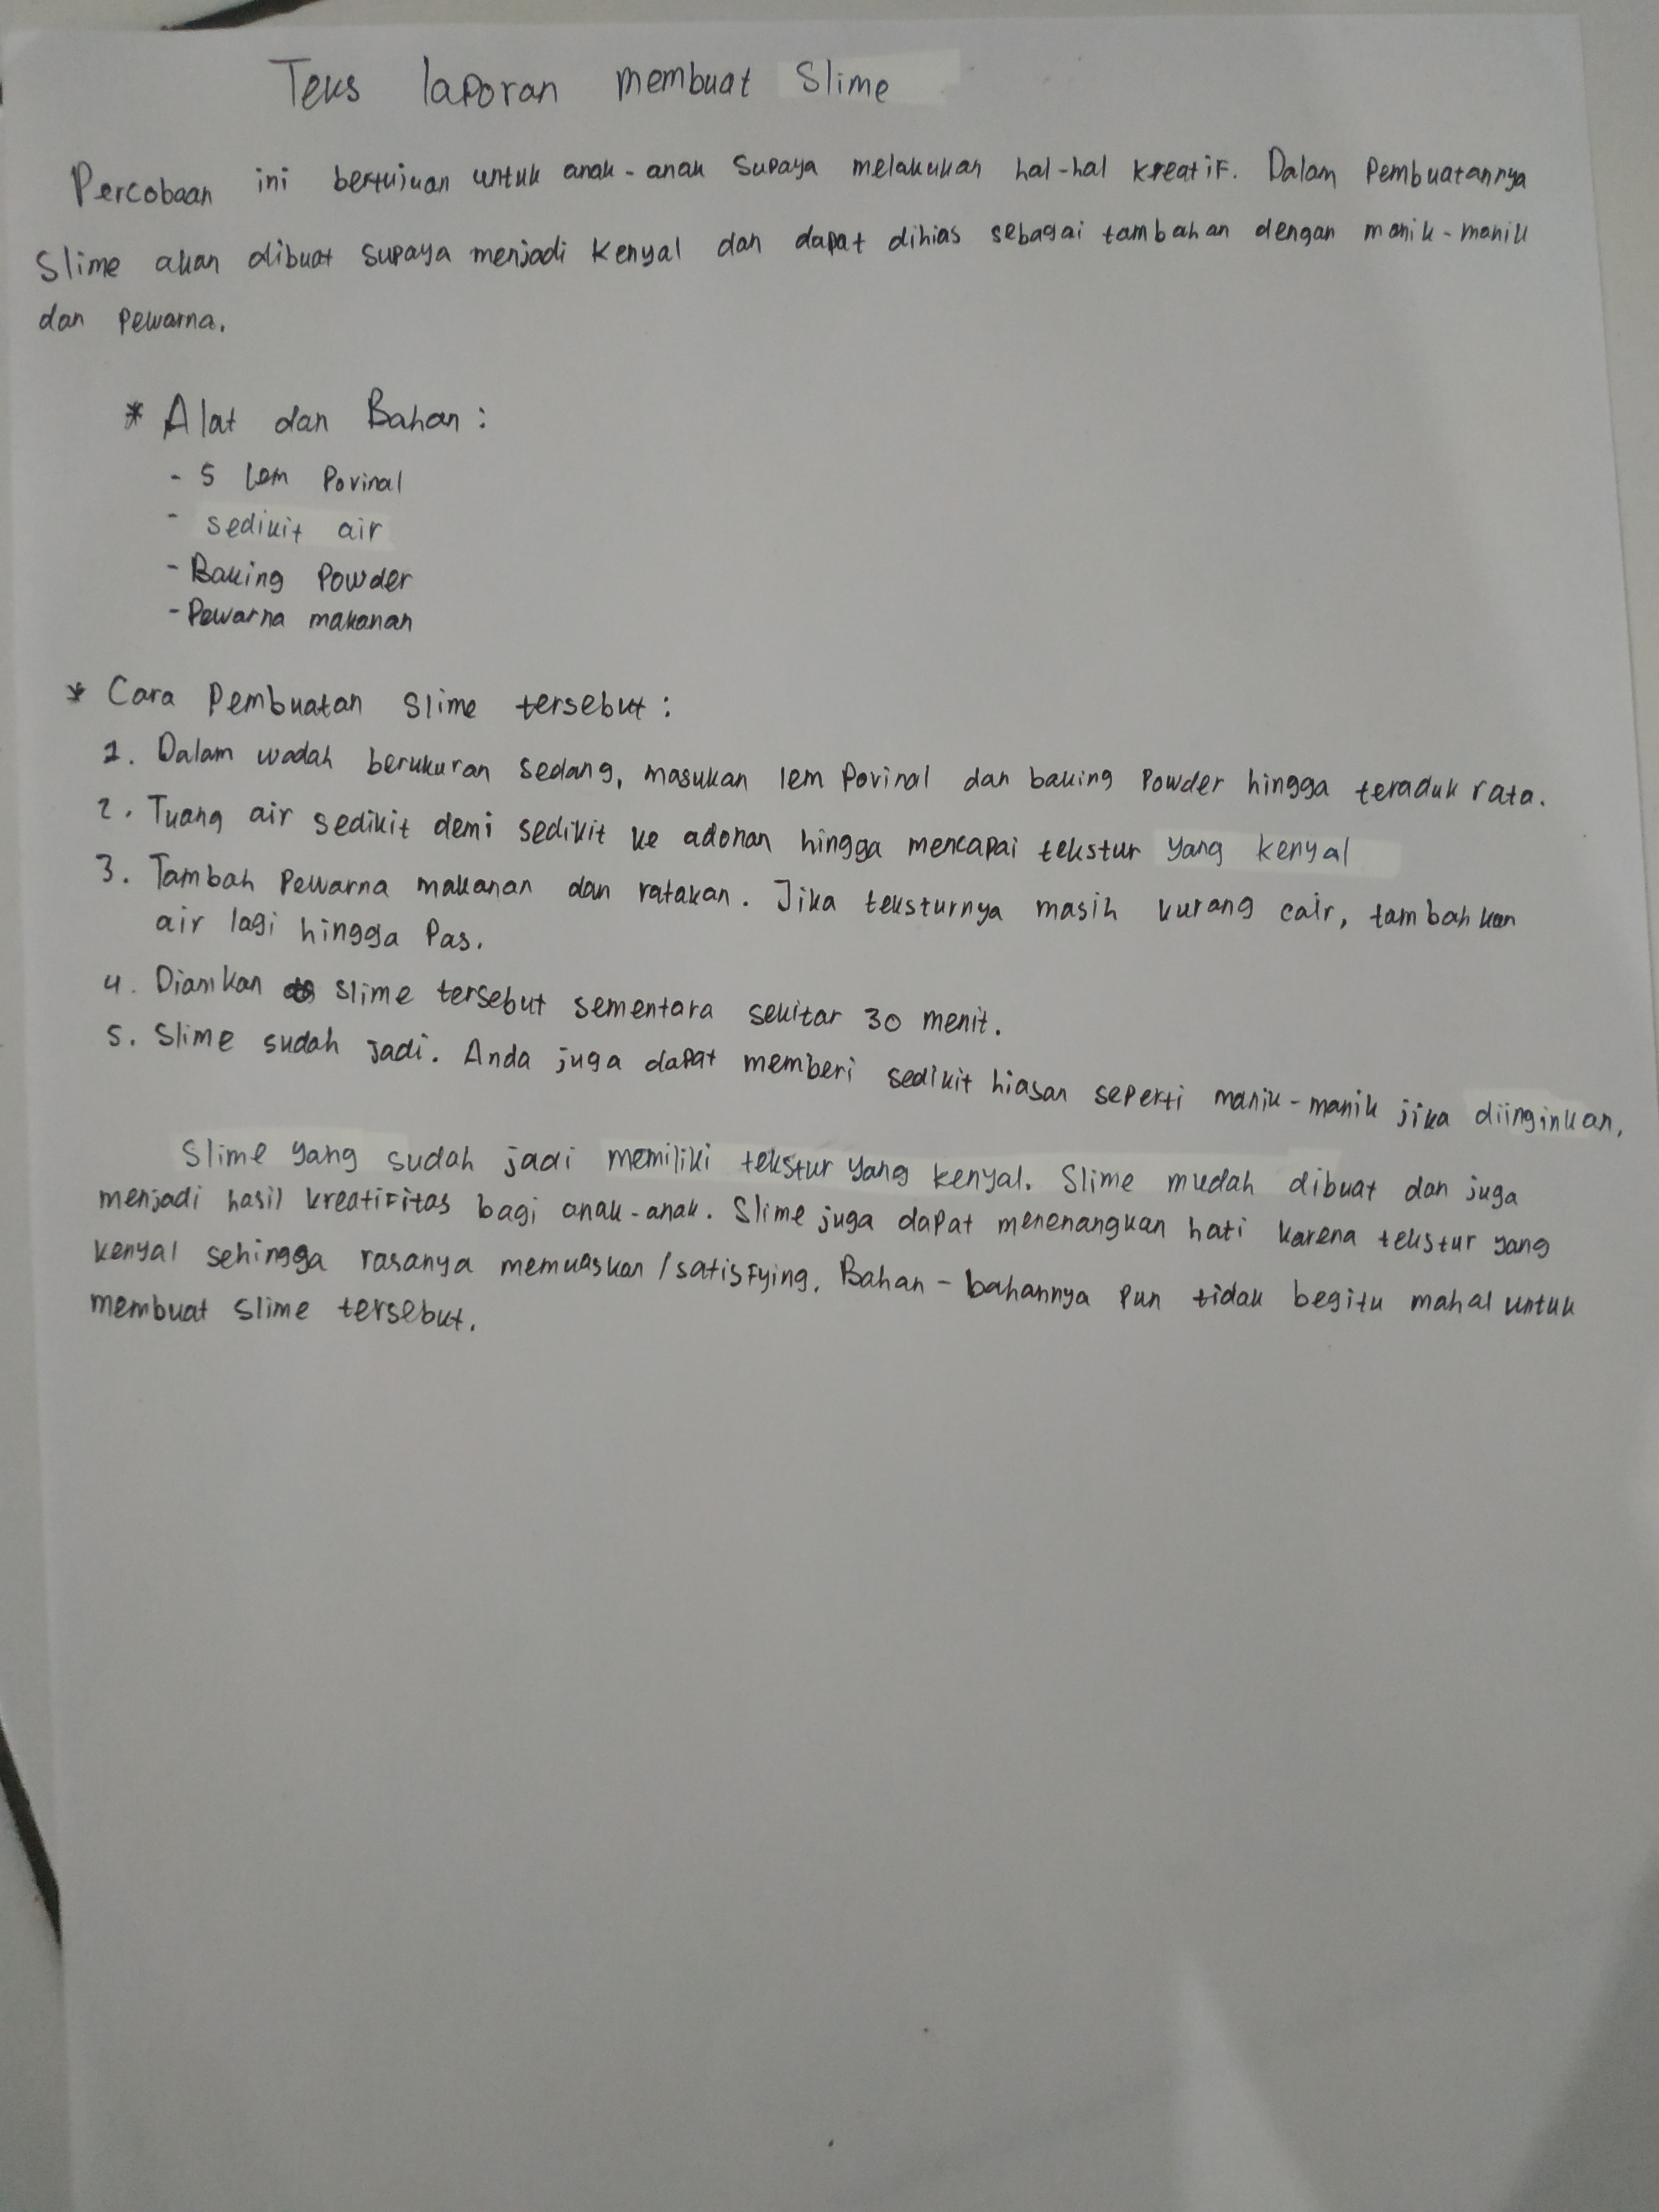 Teks laporan membuat Slime
Percobaan ini bertujuan untuk anak-anak supaya melakukan hal-hal kreatif. Dalam Pembuatannya
Slime akan dibuat supaya menjadi kenyal dan dapat dihias sebagai tambahan dengan manik-manik
dan Pewarna.
* Alat dan Bahan :
- 5 lem Povinal
- sedikit air
- Baking Powder
- Pewarna makanan
* Cara Pembuatan Slime tersebut :
1. Dalam wadah berukuran sedang, masukan lem Povinal dan baking Powder hingga teraduk rata.
2. Tuang air sedikit demi sedikit ke adonan hingga mencapai tekstur yang kenyal
3. Tambah Pewarna makanan dan ratakan. Jika teksturnya masih kurang cair, tambahkan
air lagi hingga Pas.
4. Diamkan slime tersebut sementara sekitar 30 menit.
5. Slime sudah jadi. Anda juga dapat memberi sedikit hiasan seperti manik-manik jika diinginkan.
Slime yang sudah jadi memiliki tekstur yang kenyal. Slime mudah dibuat dan juga
menjadi hasil kreatifitas bagi anak-anak. Slime juga dapat menenangkan hati karena tekstur yang
kenyal sehingga rasanya memuaskan/satisfying. Bahan-bahannya pun tidak begitu mahal untuk
membuat slime tersebut.